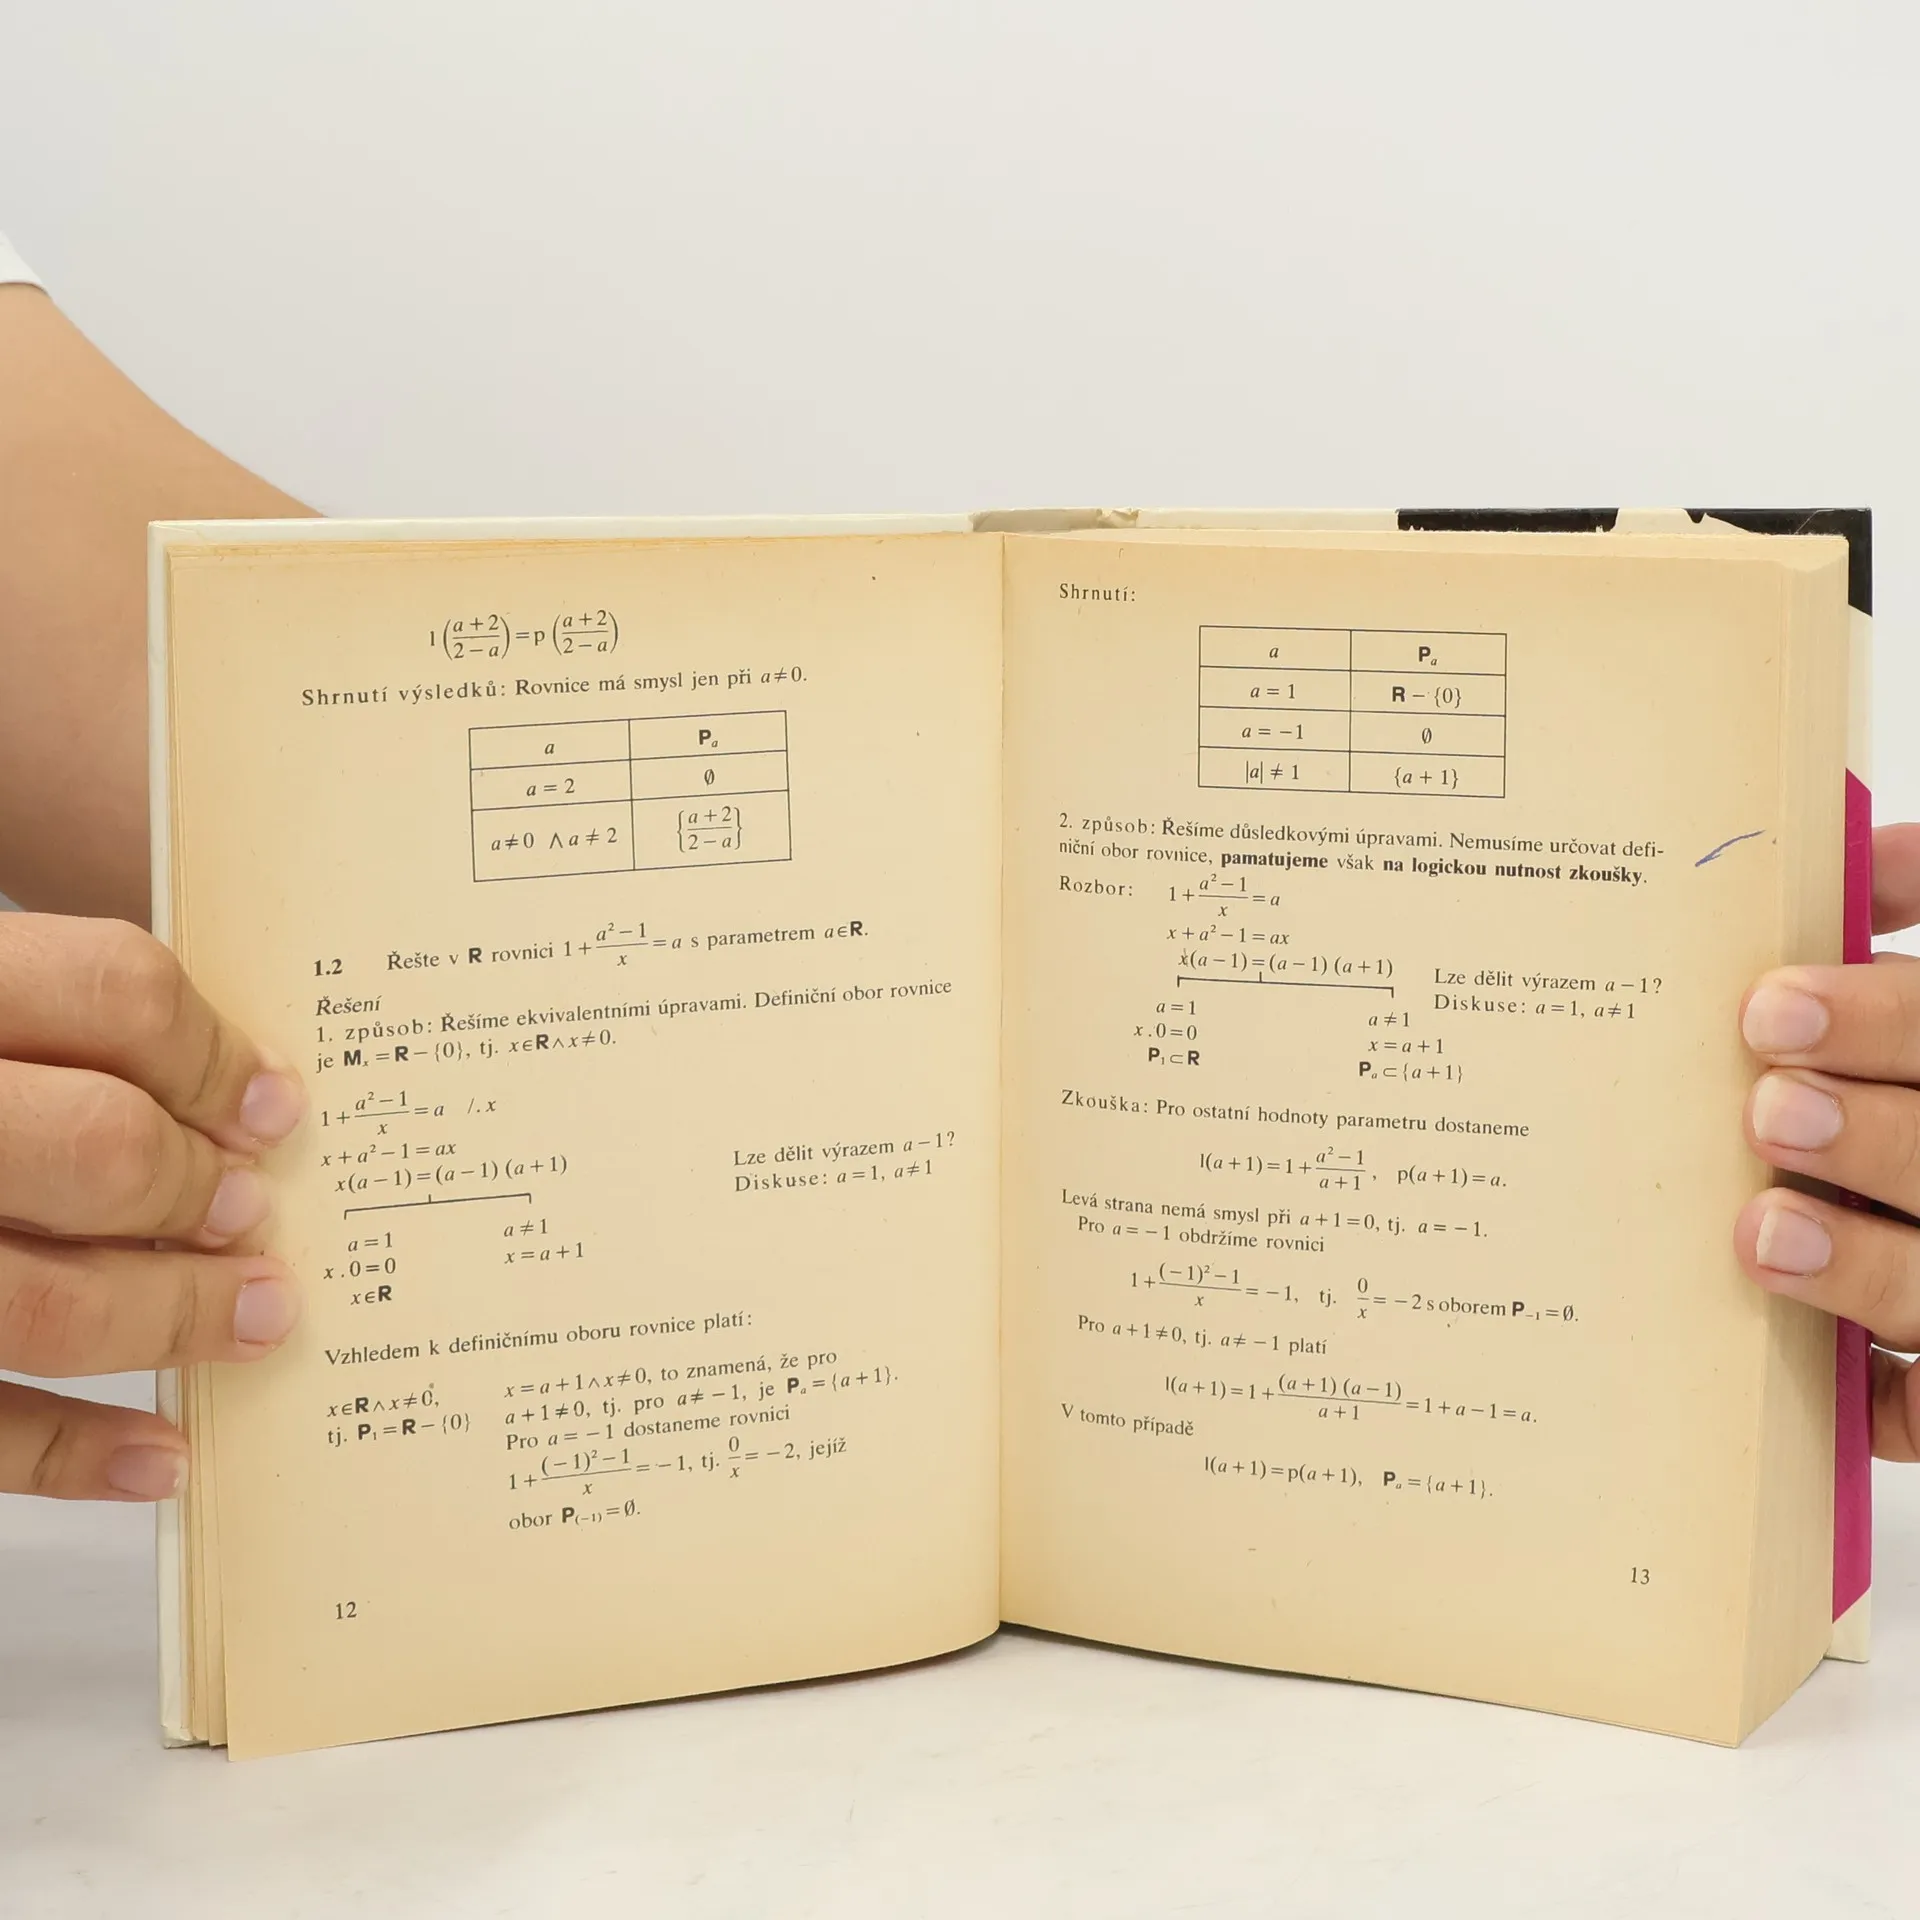 l((a+2)/(2−a))=p((a+2)/(2−a))
Shrnutí výsledků: Rovnice má smysl jen při a≠0.
a P_a
a = 2 ∅
a≠0 ∧ a≠2 {(a+2)/(2−a)}
1.2 Řešte v R rovnici 1+(a²−1)/x=a s parametrem a∈R.
Řešení
1. způsob: Řešíme ekvivalentními úpravami. Definiční obor rovnice
je M_x=R−{0}, tj. x∈R∧x≠0.
1+(a²−1)/x=a /.x
x+a²−1=ax
x(a−1)=(a−1)(a+1)
Lze dělit výrazem a−1?
Diskuse: a=1, a≠1
a=1 a≠1
x.0=0 x=a+1
x∈R
Vzhledem k definičnímu oboru rovnice platí:
x∈R∧x≠0,
tj. P₁=R−{0}
x=a+1∧x≠0, to znamená, že pro
a+1≠0, tj. pro a≠−1, je P_a={a+1}.
Pro a=−1 dostaneme rovnici
1+((−1)²−1)/x=−1, tj. 0/x=−2, jejíž
obor P_(−1)=∅.
12
Shrnutí:
a P_a
a = 1 R − {0}
a = −1 ∅
|a| ≠ 1 {a + 1}
2. způsob: Řešíme důsledkovými úpravami. Nemusíme určovat defi-
niční obor rovnice, pamatujeme však na logickou nutnost zkoušky.
Rozbor: 1+(a²−1)/x=a
x+a²−1=ax
x(a−1)=(a−1)(a+1)
Lze dělit výrazem a−1?
Diskuse: a=1, a≠1
a=1 a≠1
x.0=0 x=a+1
P₁⊂R P_a⊂{a+1}
Zkouška: Pro ostatní hodnoty parametru dostaneme
l(a+1)=1+(a²−1)/(a+1), p(a+1)=a.
Levá strana nemá smysl při a+1=0, tj. a=−1.
Pro a=−1 obdržíme rovnici
1+((−1)²−1)/x=−1, tj. 0/x=−2 s oborem P₋₁=∅.
Pro a+1≠0, tj. a≠−1 platí
l(a+1)=1+((a+1)(a−1))/(a+1)=1+a−1=a.
V tomto případě
l(a+1)=p(a+1), P_a={a+1}.
13